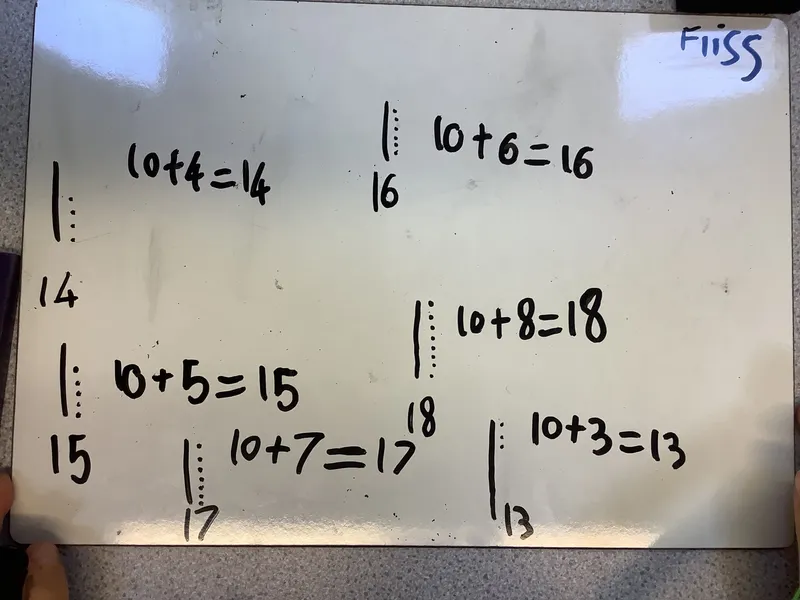 Fliss
10+4=14
14
10+6=16
16
10+5=15
15
10+8=18
18
10+7=17
17
10+3=13
13